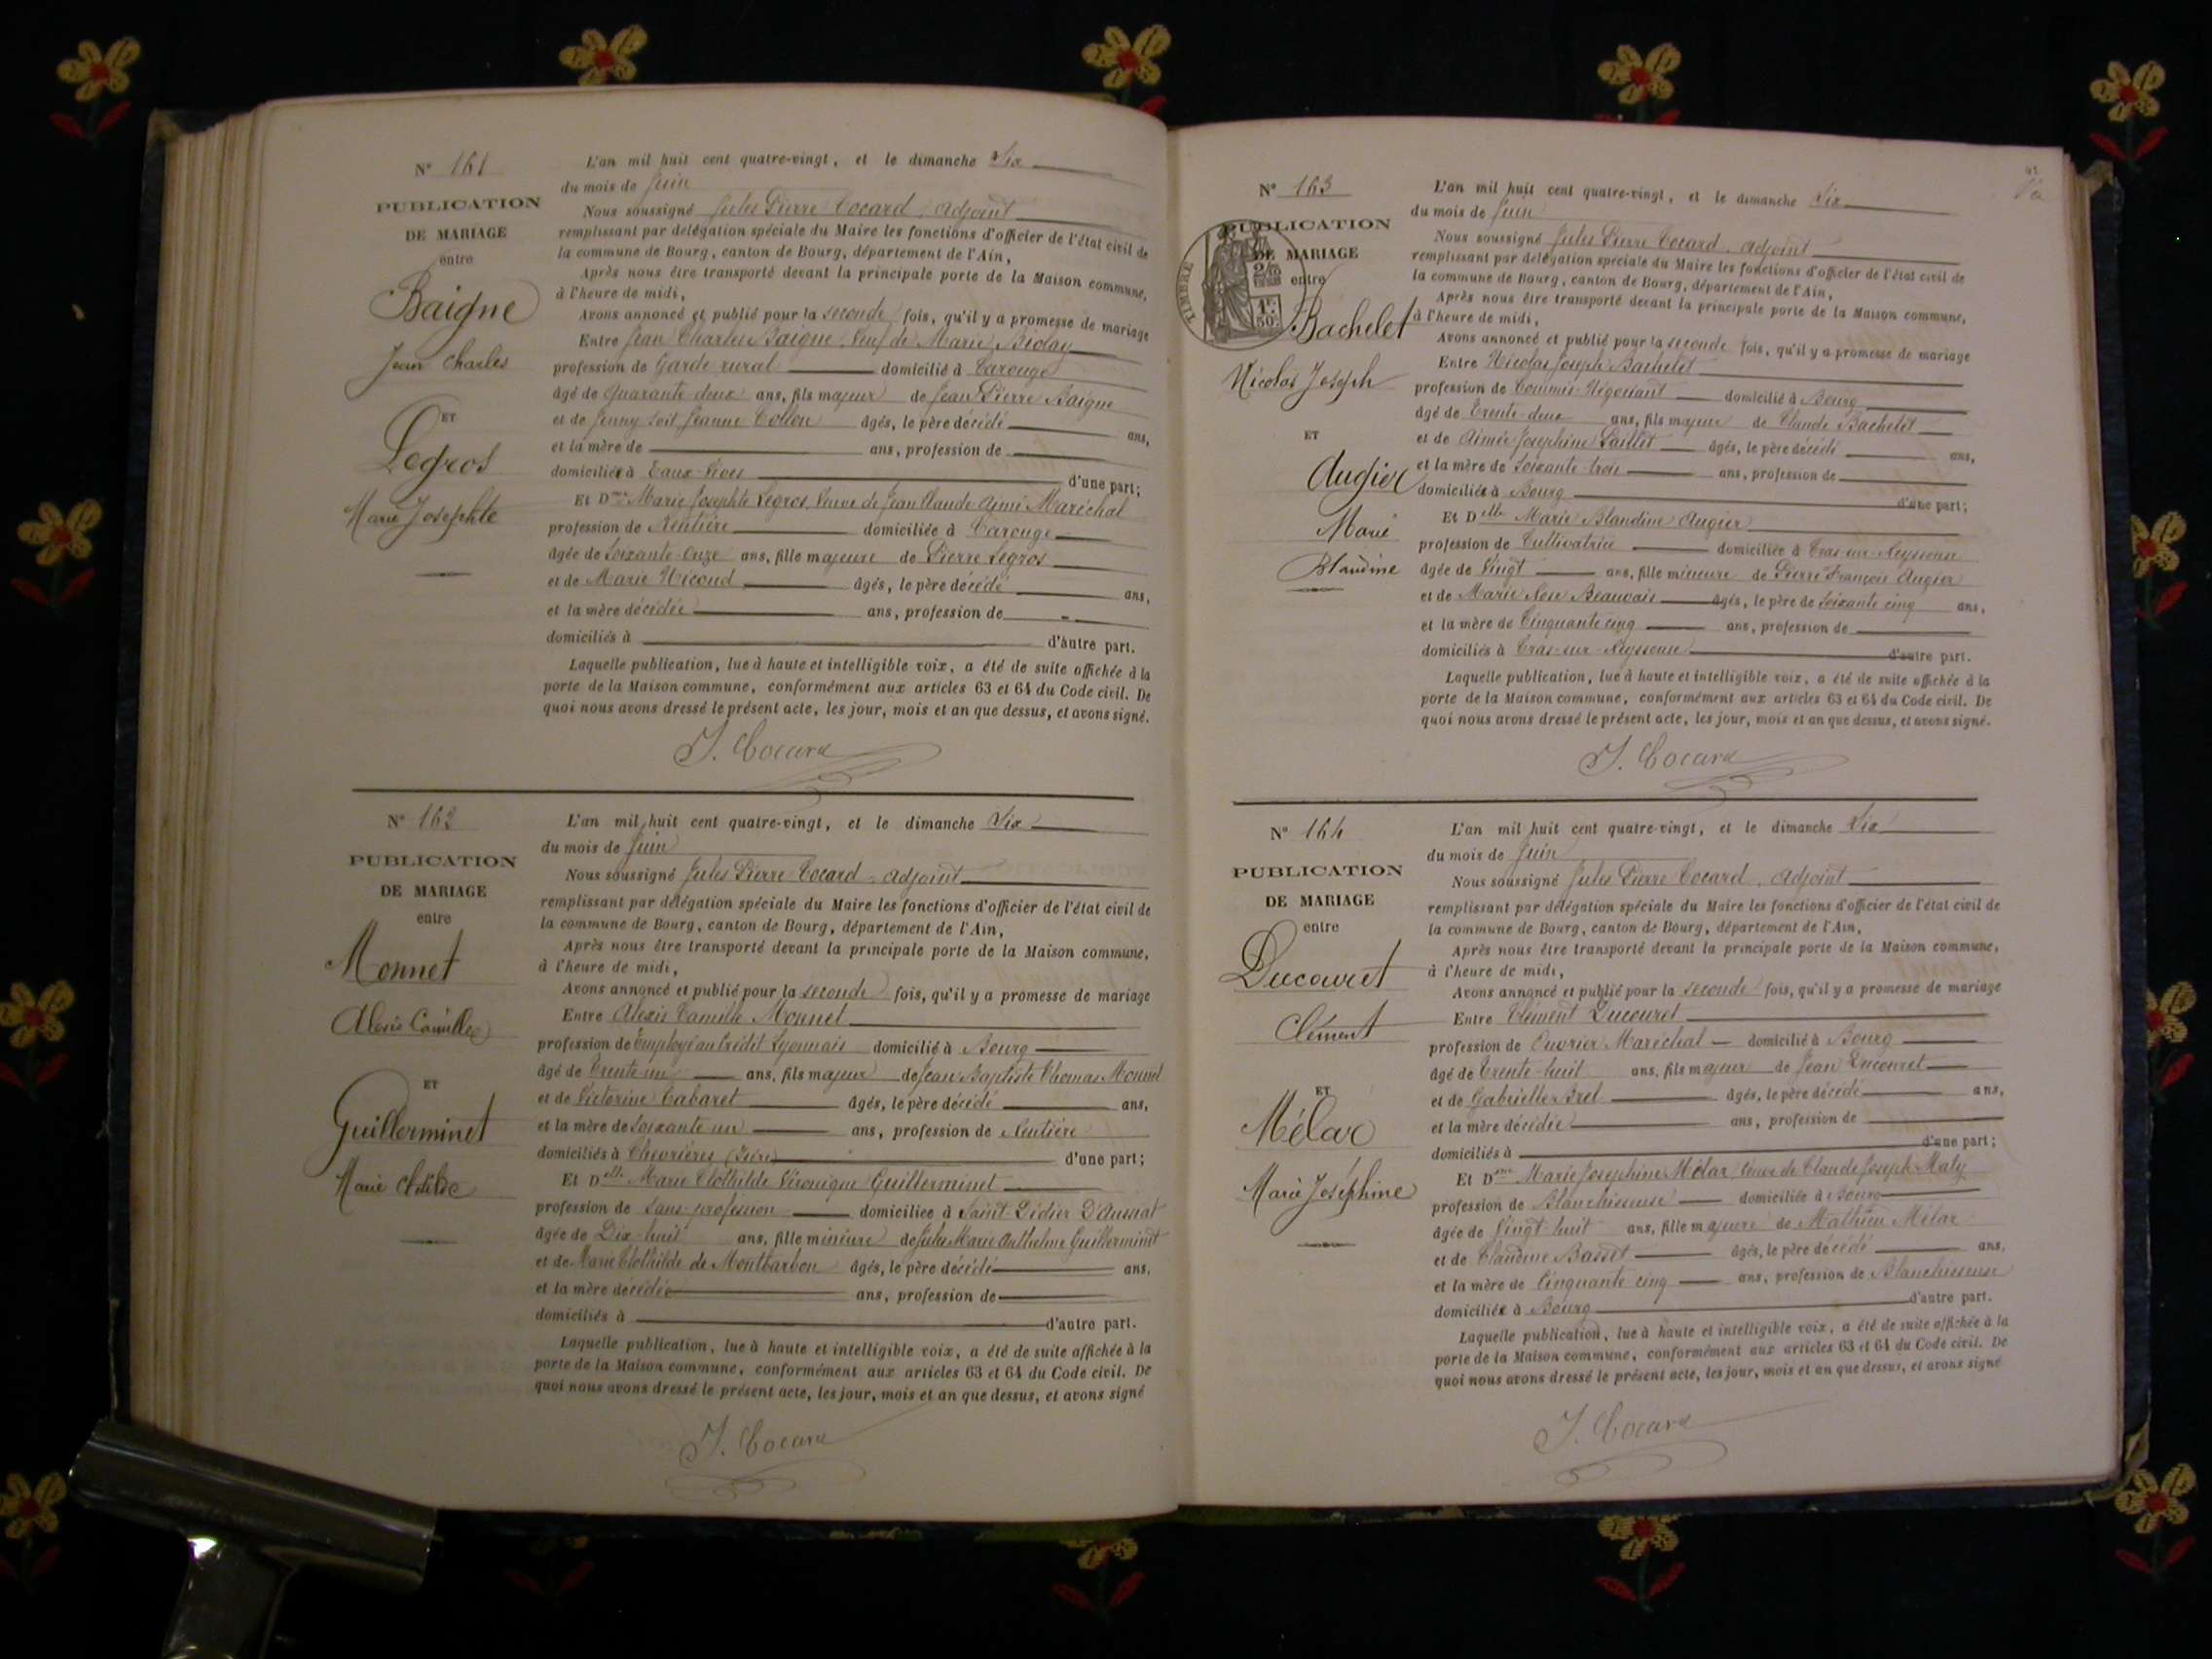 N° 161
PUBLICATION
DE MARIAGE
entre
Baigne
Jean Charles
ET
Legros
Marie Josephte
L'an mil huit cent quatre-vingt, et le dimanche Six
du mois de Juin
Nous soussigné Jules Pierre Cocard, adjoint
remplissant par délégation spéciale du Maire les fonctions d'officier de l'état civil de
la commune de Bourg, canton de Bourg, département de l'Ain,
Après nous être transporté devant la principale porte de la Maison commune,
à l'heure de midi,
Avons annoncé et publié pour la seconde fois, qu'il y a promesse de mariage
Entre Jean Charles Baigne, Veuf de Marie Biolay
profession de Garde rural domicilié à Carouge
âgé de quarante deux ans, fils majeur de Jean Pierre Baigne
et de Jenny soit Jeanne âgés, le père décédé ans,
et la mère de ans, profession de
domiciliés à Eaux-Vives d'une part;
Et Dme Marie Josephte Legros, Veuve de Jean Claude Aimé Maréchal
profession de Rentière domiciliée à Carouge
âgée de Soixante-Onze ans, fille majeure de Pierre Legros
et de Marie Nicoud âgés, le père décédé ans,
et la mère décédée ans, profession de
domiciliés à d'autre part.
Laquelle publication, lue à haute et intelligible voix, a été de suite affichée à la
porte de la Maison commune, conformément aux articles 63 et 64 du Code civil. De
quoi nous avons dressé le présent acte, les jour, mois et an que dessus, et avons signé.
J. Cocard
N° 162
PUBLICATION
DE MARIAGE
entre
Monnet
Alexis Camille
ET
Guillerminet
Marie Clotilde
L'an mil huit cent quatre-vingt, et le dimanche Six
du mois de Juin
Nous soussigné Jules Pierre Cocard, adjoint
remplissant par délégation spéciale du Maire les fonctions d'officier de l'état civil de
la commune de Bourg, canton de Bourg, département de l'Ain,
Après nous être transporté devant la principale porte de la Maison commune,
à l'heure de midi,
Avons annoncé et publié pour la seconde fois, qu'il y a promesse de mariage
Entre Alexis Camille Monnet
profession de Employé au Crédit Lyonnais domicilié à Bourg
âgé de Trente un ans, fils majeur de Jean Baptiste Thomas Monnet
et de Victorine Cabaret âgés, le père décédé ans,
et la mère de Soixante un ans, profession de Rentière
domiciliés à Chevrières (Isère) d'une part;
Et Delle Marie Clothilde Véronique Guillerminet
profession de Sans profession domiciliée à Saint Didier D'Aussiat
âgée de Dix-huit ans, fille mineure de Jules Marie Anthelme Guillerminet
et de Marie Clothilde de Montbarbon âgés, le père décédé ans,
et la mère décédée ans, profession de
domiciliés à d'autre part.
Laquelle publication, lue à haute et intelligible voix, a été de suite affichée à la
porte de la Maison commune, conformément aux articles 63 et 64 du Code civil. De
quoi nous avons dressé le présent acte, les jour, mois et an que dessus, et avons signé
J. Cocard
N° 163
PUBLICATION
DE MARIAGE
entre
TIMBRE
1F.
50c.
Bachelet
Nicolas Joseph
ET
Augier
Marie
Blandine
L'an mil huit cent quatre-vingt, et le dimanche Six
du mois de Juin
Nous soussigné Jules Pierre Cocard, adjoint
remplissant par délégation spéciale du Maire les fonctions d'officier de l'état civil de
la commune de Bourg, canton de Bourg, département de l'Ain,
Après nous être transporté devant la principale porte de la Maison commune,
à l'heure de midi,
Avons annoncé et publié pour la seconde fois, qu'il y a promesse de mariage
Entre Nicolas Joseph Bachelet
profession de Commis-Négociant domicilié à Bourg
âgé de Trente-deux ans, fils majeur de Claude Bachelet
et de Aimée Josephine Paillet âgés, le père décédé ans,
et la mère de Soixante trois ans, profession de
domiciliée à Bourg d'une part;
Et Delle Marie Blandine Augier
profession de Cultivatrice domiciliée à Cras-sur-Reyssouze
âgée de Vingt ans, fille mineure de Pierre François Augier
et de Marie Rose Beauvais âgés, le père de Soixante cinq ans,
et la mère de Cinquante cinq ans, profession de
domiciliés à Cras-sur-Reyssouze d'autre part.
Laquelle publication, lue à haute et intelligible voix, a été de suite affichée à la
porte de la Maison commune, conformément aux articles 63 et 64 du Code civil. De
quoi nous avons dressé le présent acte, les jour, mois et an que dessus, et avons signé.
J. Cocard
N° 164
PUBLICATION
DE MARIAGE
entre
Ducouret
Clément
ET
Mélar
Marie Joséphine
L'an mil huit cent quatre-vingt, et le dimanche Six
du mois de Juin
Nous soussigné Jules Pierre Cocard, adjoint
remplissant par délégation spéciale du Maire les fonctions d'officier de l'état civil de
la commune de Bourg, canton de Bourg, département de l'Ain,
Après nous être transporté devant la principale porte de la Maison commune,
à l'heure de midi,
Avons annoncé et publié pour la seconde fois, qu'il y a promesse de mariage
Entre Clément Ducouret
profession de Ouvrier Maréchal domicilié à Bourg
âgé de Trente-huit ans, fils majeur de Jean Ducouret
et de Gabrielle Brel âgés, le père décédé ans,
et la mère décédée ans, profession de
domiciliés à d'une part;
Et Dme Marie Josephine Mélar, Veuve de Claude Joseph Maty
profession de Blanchisseuse domiciliée à Bourg
âgée de Vingt-huit ans, fille majeure de Mathieu Mélar
et de Claudine Basset âgés, le père décédé ans,
et la mère de Cinquante cinq ans, profession de Blanchisseuse
domiciliée à Bourg d'autre part.
Laquelle publication, lue à haute et intelligible voix, a été de suite affichée à la
porte de la Maison commune, conformément aux articles 63 et 64 du Code civil. De
quoi nous avons dressé le présent acte, les jour, mois et an que dessus, et avons signé
J. Cocard